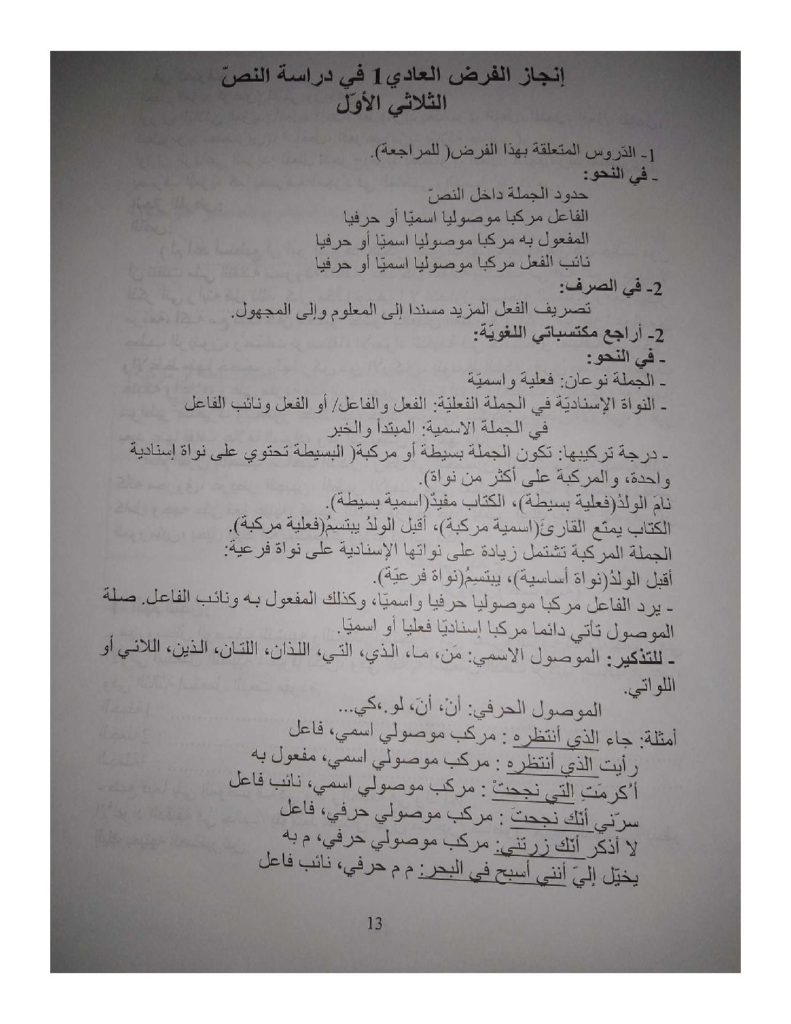 إنجاز الفرض العادي1 في دراسة النصّ
الثلاثي الأوّل
1- الدّروس المتعلقة بهذا الفرض( للمراجعة).
- في النحو:
حدود الجملة داخل النصّ
الفاعل مركبا موصوليا اسميّا أو حرفيا
المفعول به مركبا موصوليا اسميّا أو حرفيا
نائب الفعل مركبا موصوليا اسميّا أو حرفيا
2- في الصرف:
تصريف الفعل المزيد مسندا إلى المعلوم وإلى المجهول.
2- أراجع مكتسباتي اللغويّة:
- في النحو:
- الجملة نوعان: فعلية واسميّة
- النواة الإسناديّة في الجملة الفعليّة: الفعل والفاعل/ أو الفعل ونائب الفاعل
في الجملة الاسمية: المبتدأ والخبر
- درجة تركيبها: تكون الجملة بسيطة أو مركبة( البسيطة تحتوي على نواة إسنادية
واحدة، والمركبة على أكثر من نواة).
نامَ الولدُ(فعلية بسيطة)، الكتاب مفيدٌ(اسمية بسيطة).
الكتاب يمتّع القارئَ(اسمية مركبة)، أقبل الولدُ يبتسمُ(فعلية مركبة).
الجملة المركبة تشتمل زيادة على نواتها الإسنادية على نواة فرعية:
أقبل الولدُ(نواة أساسية)، يبتسِمُ(نواة فرعيّة).
- يرد الفاعل مركبا موصوليا حرفيا واسميّا، وكذلك المفعول به ونائب الفاعل. صلة
الموصول تأتي دائما مركبا إسناديّا فعليا أو اسميّا.
- للتذكير: الموصول الاسمي: مَن، ما، الذي، التي، اللذان، اللتان، الذين، اللاتي أو
اللواتي.
الموصول الحرفي: أنْ، أنَ، لو.،كي...
أمثلة: جاء الذي أنتظره : مركب موصولي اسمي، فاعل
رأيت الذي أنتظره : مركب موصولي اسمي، مفعول به
أُكرمَتِ التي نجحتْ : مركب موصولي اسمي، نائب فاعل
سرّني أنّك نجحتَ : مركب موصولي حرفي، فاعل
لا أذكر أنّك زرتني: مركب موصولي حرفي، م به
يخيّل إليّ أنني أسبح في البحر: م م حرفي، نائب فاعل
13